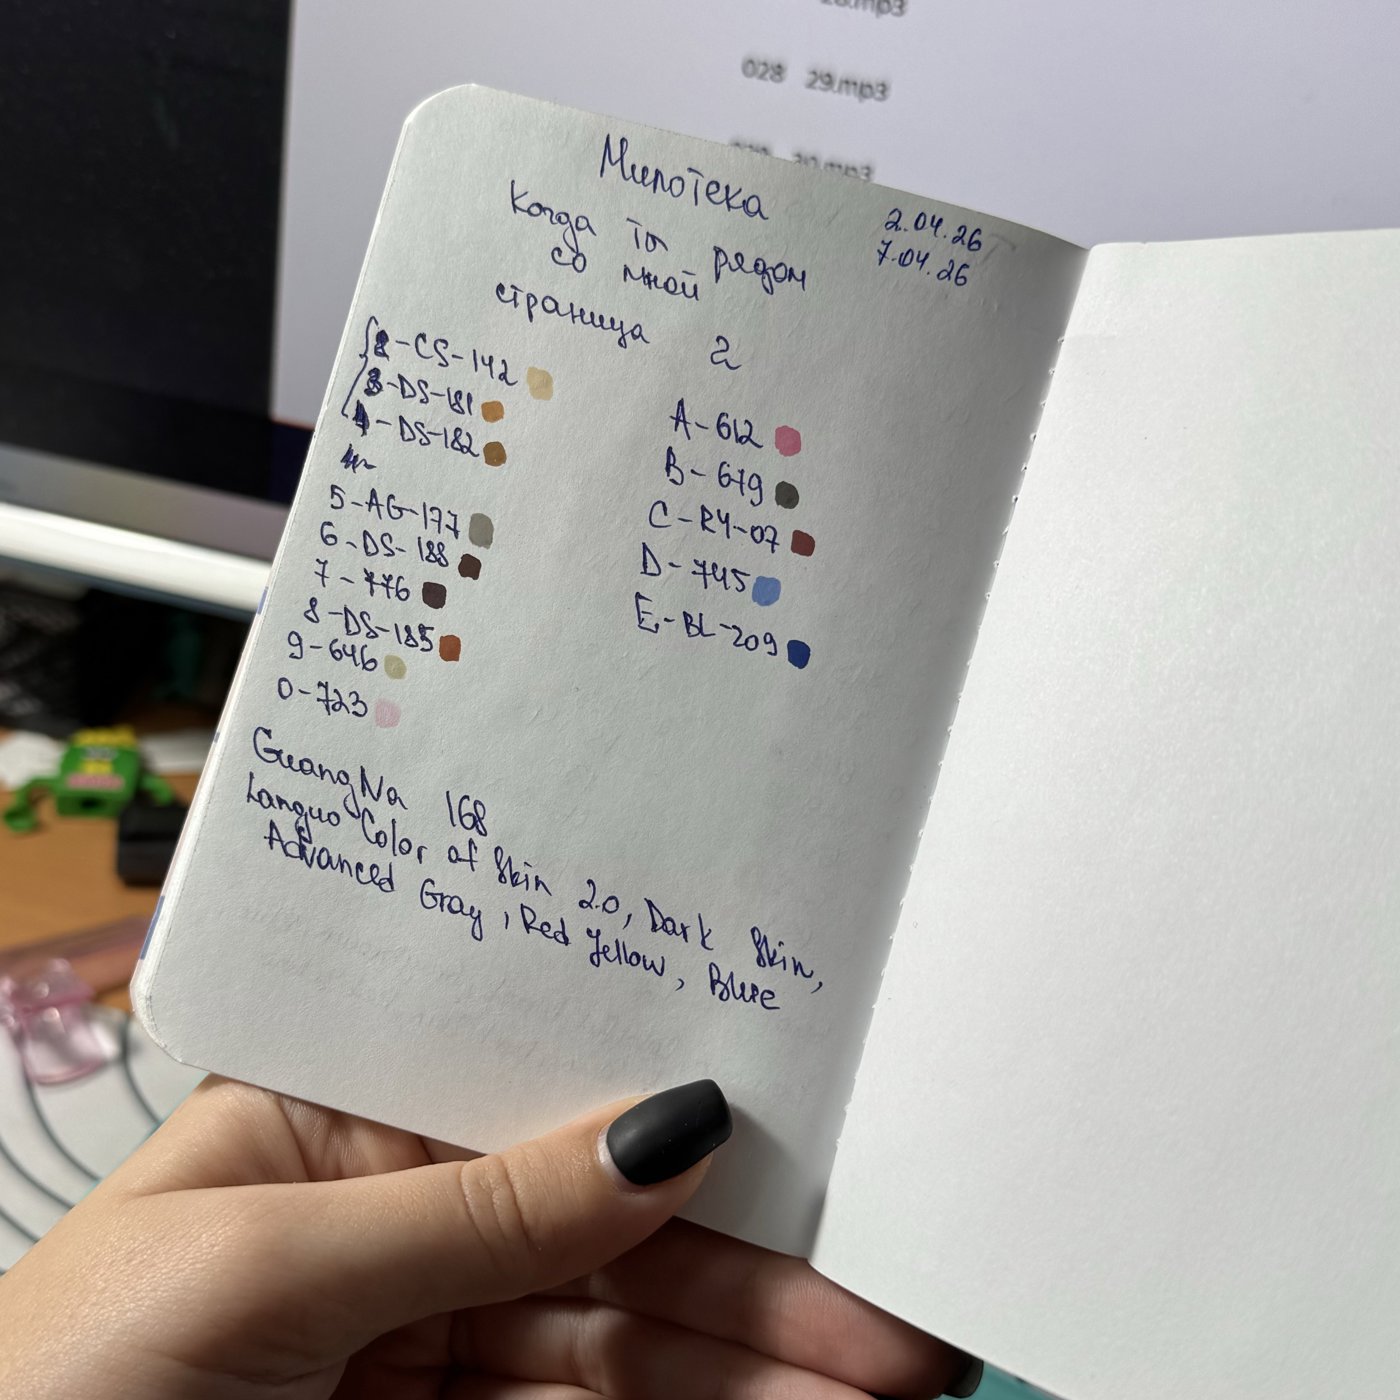 28.mp3
028 29.mp3
30.mp3
Милотека
2.04.26
7.04.26
Когда ты рядом
со мной
страница 2
2-CS-142
3-DS-181
4-DS-182
5-AG-177
6-DS-188
7-776
8-DS-185
9-646
0-723
A-612
B-679
C-RY-07
D-745
E-BL-209
GuangNa 168
Languo Color of Skin 2.0, Dark Skin,
Advanced Gray, Red Yellow, Blue